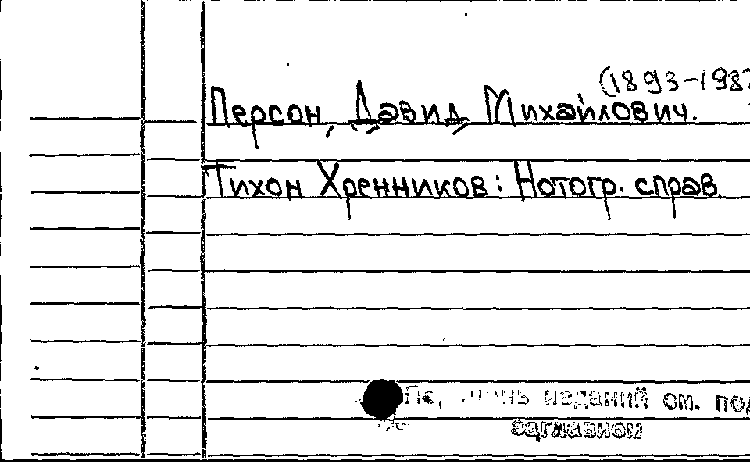 (1893-198
Персон, Давид Михайлович.
Тихон Хренников: Нотогр. справ
изданий см. под
заглавием